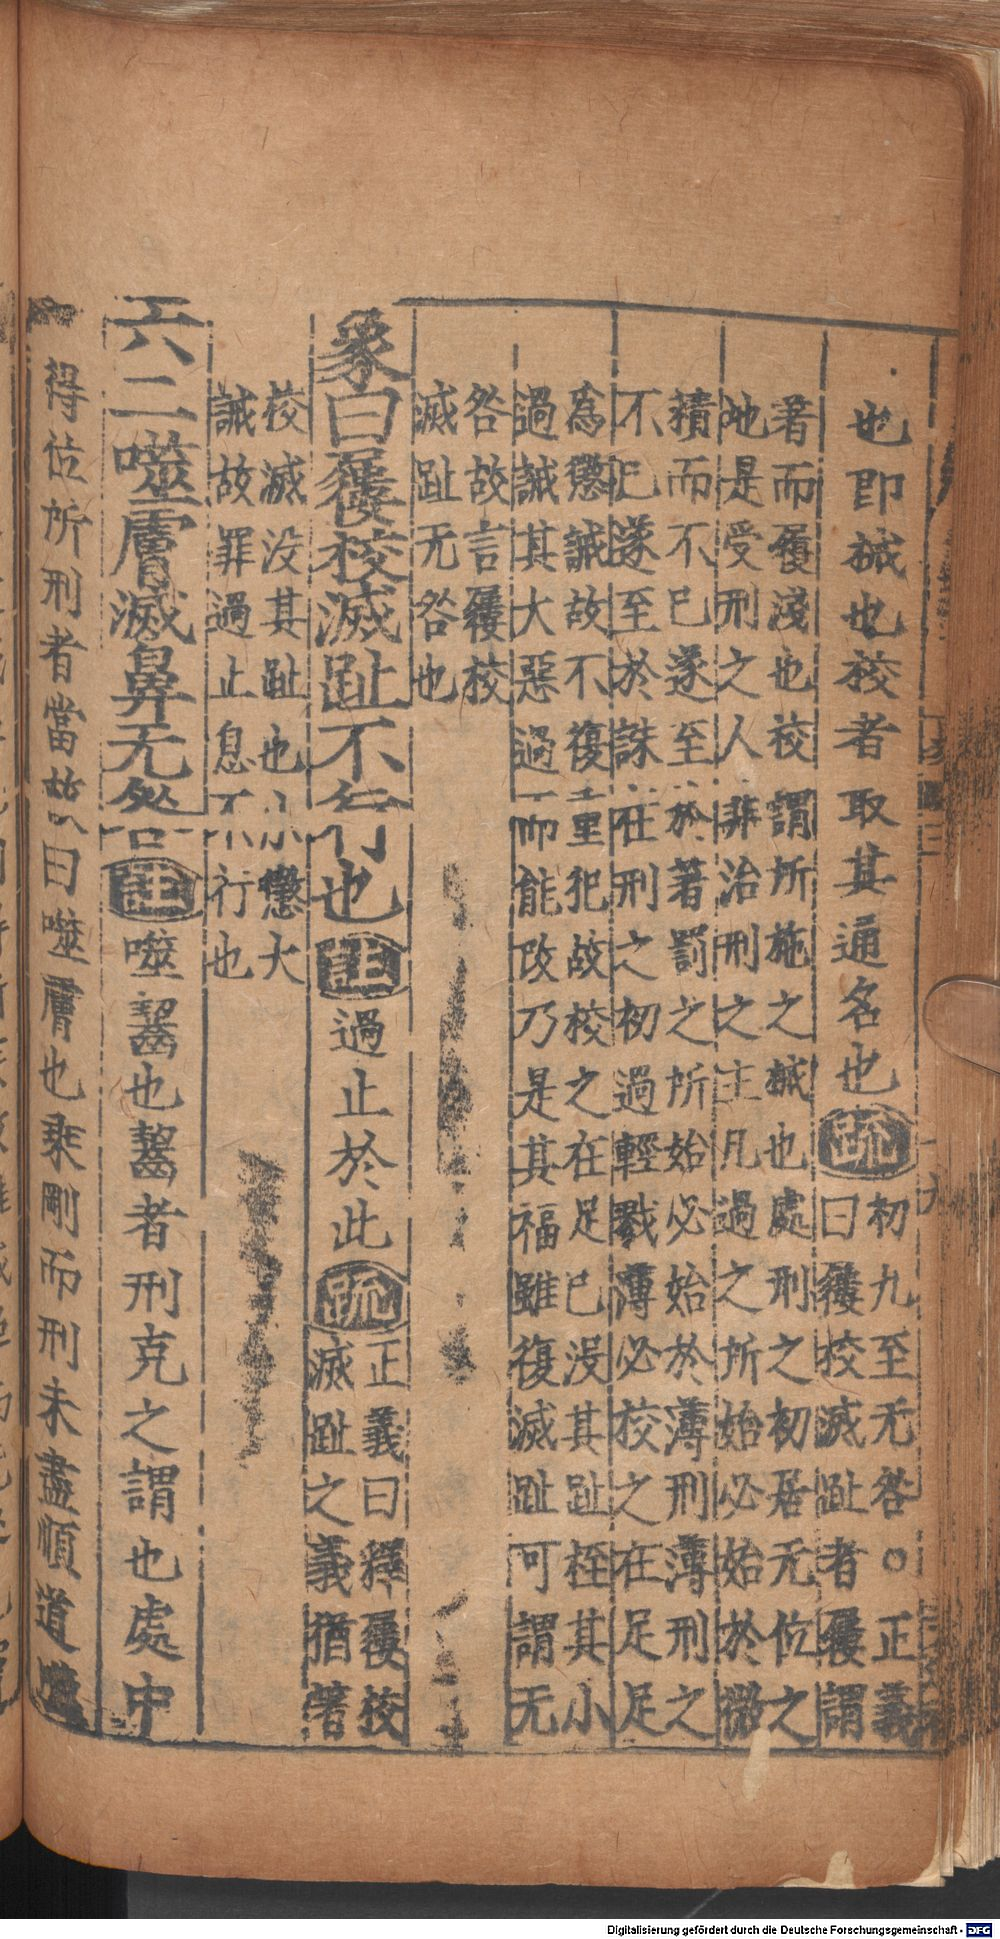 也即械也校者取其通名也疏
初九至无咎○正義
曰屨校滅趾者屨謂
著而履淺也校謂所施之械也處刑之初居无位之
地是受刑之人非治刑之主凡過之所始必始於微
積而不已遂至於著罰之所始必始於薄刑薄刑之
不已遂至於誅在刑之初過輕戮薄必校之在足足
為懲誡故不復重犯故校之在足已没其趾桎其小
過誡其大惡過而能改乃是其福雖復滅趾可謂无
咎故言屨校
滅趾无咎也
象曰屨校滅趾不行也註過止於此疏
正義曰釋屨校
滅趾之義猶著
校滅没其趾也小懲大
誡故罪過止息不行也
六二噬膚滅鼻无咎註噬齧也齧者刑克之謂也處中
得位所刑者當故曰噬膚也乘剛而刑未盡順道噬
Digitalisierung gefördert durch die Deutsche Forschungsgemeinschaft - DFG